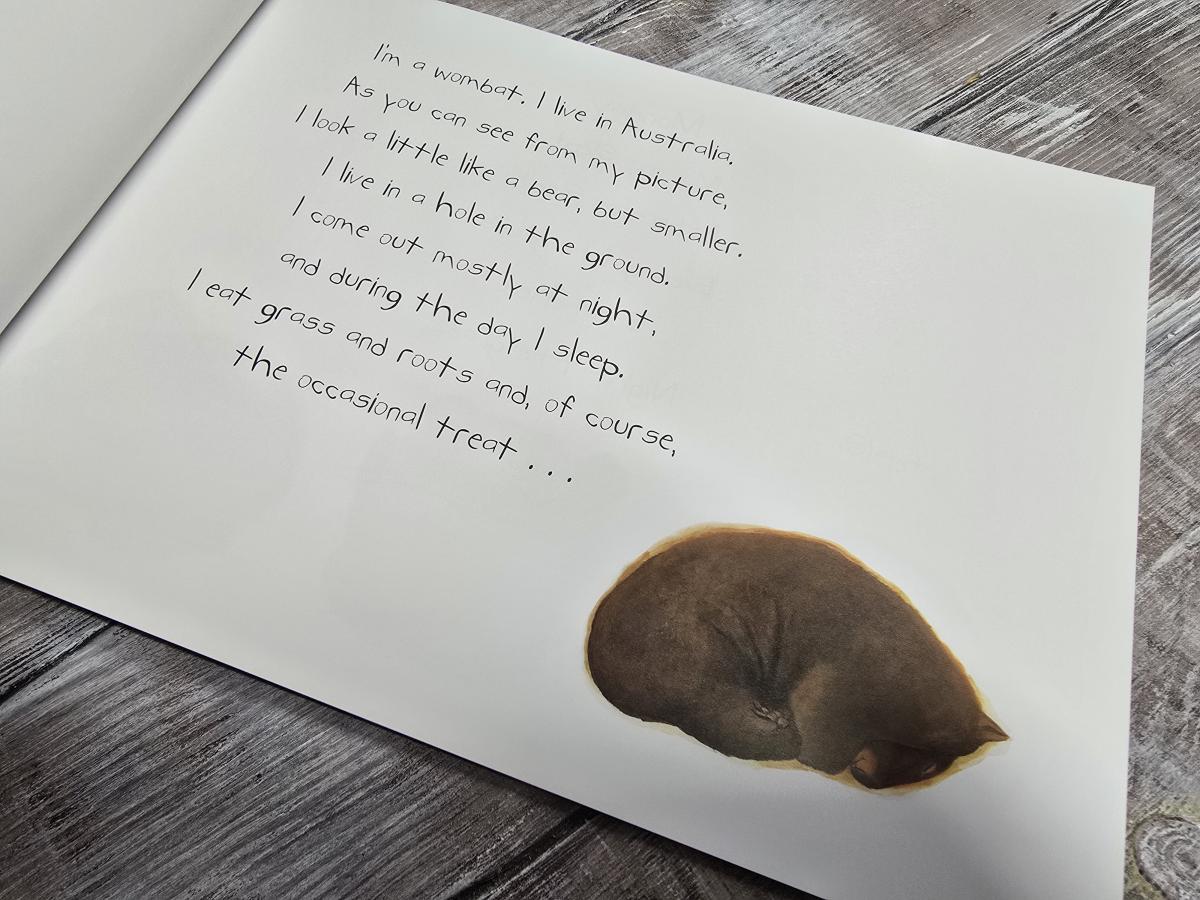 I'm a wombat. I live in Australia.
As you can see from my picture,
I look a little like a bear, but smaller.
I live in a hole in the ground.
I come out mostly at night,
and during the day I sleep.
I eat grass and roots and, of course,
the occasional treat . . .